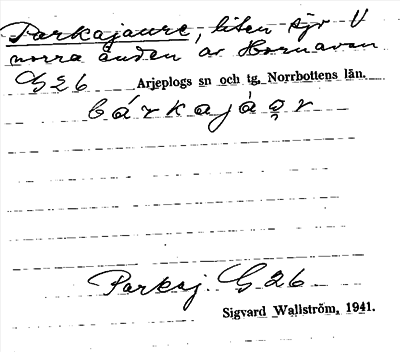 Parkajaure, liten sjö V
norra änden av Hornavan
G26 Arjeplogs sn och tg, Norrbottens län.
bárkajáo̭r
Parkaj. G26
Sigvard Wallström, 1941.